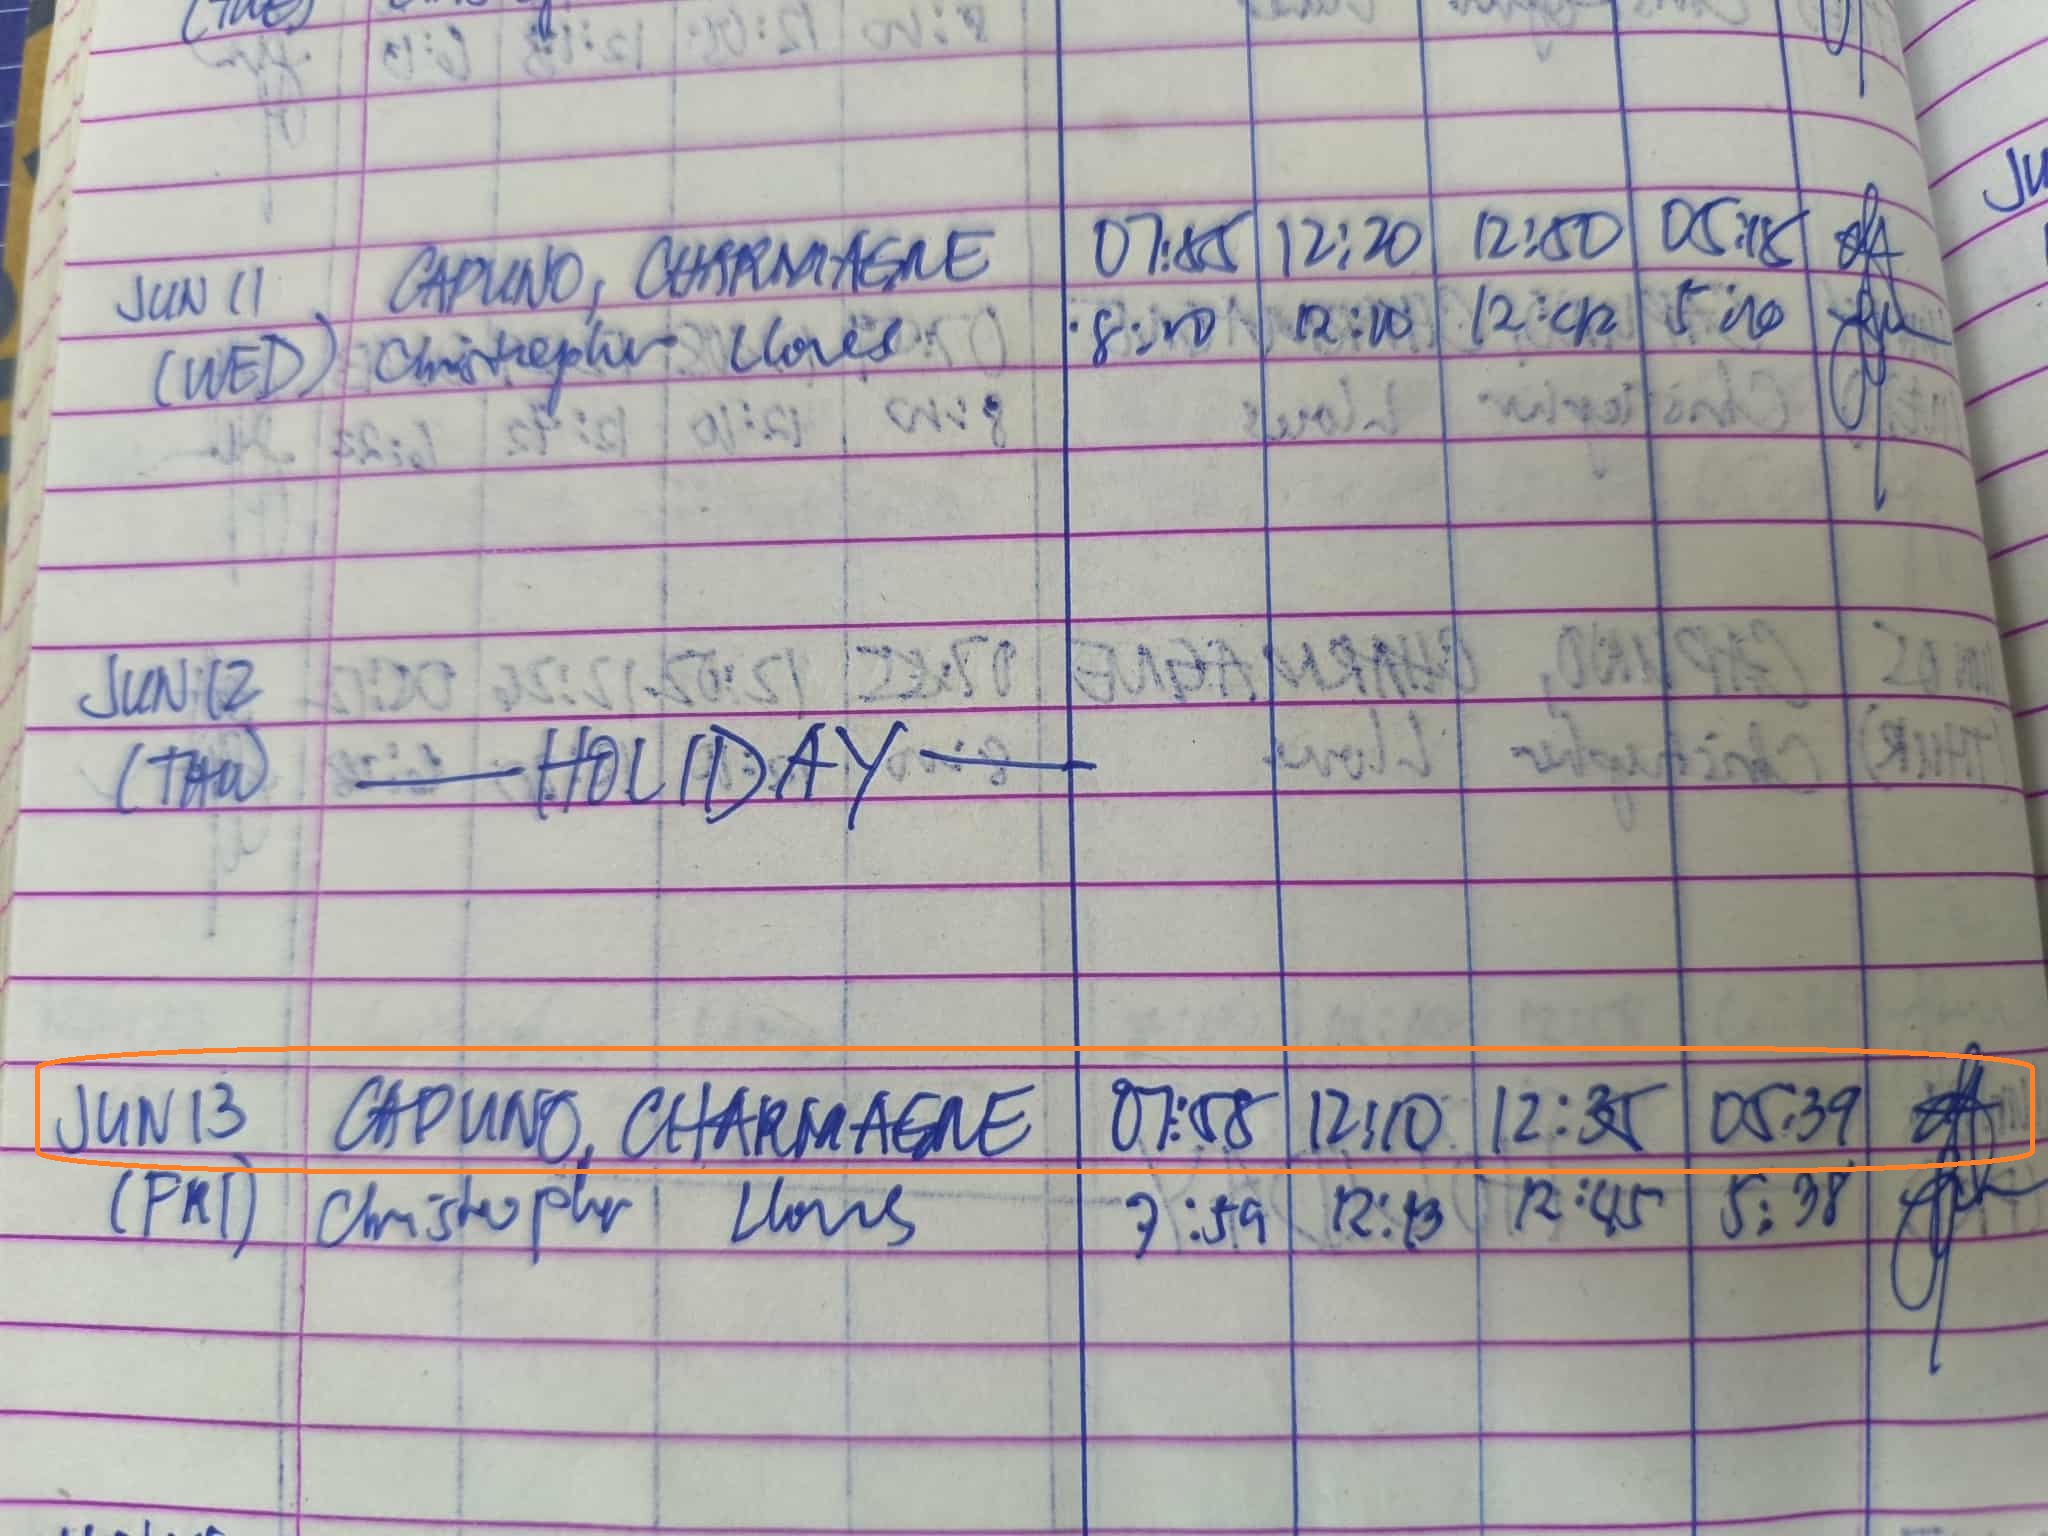 (TUE)
JUN 11 CAPUNO, CHARMAGNE 07:55 12:20 12:50 05:15
(WED) Christopher Llones 8:00 12:00 12:42 5:10
JUN 12
(THU) — HOLIDAY —
JUN 13 CAPUNO, CHARMAGNE 07:58 12:10 12:35 05:39
(FRI) Christopher Llones 7:59 12:13 12:45 5:38